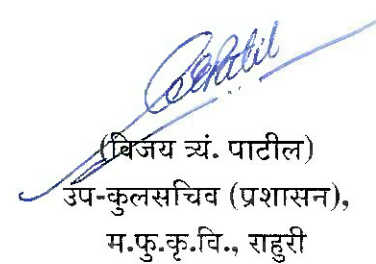 (विजय त्र्यं. पाटील)
उप-कुलसचिव (प्रशासन),
म.फु.कृ.वि., राहुरी